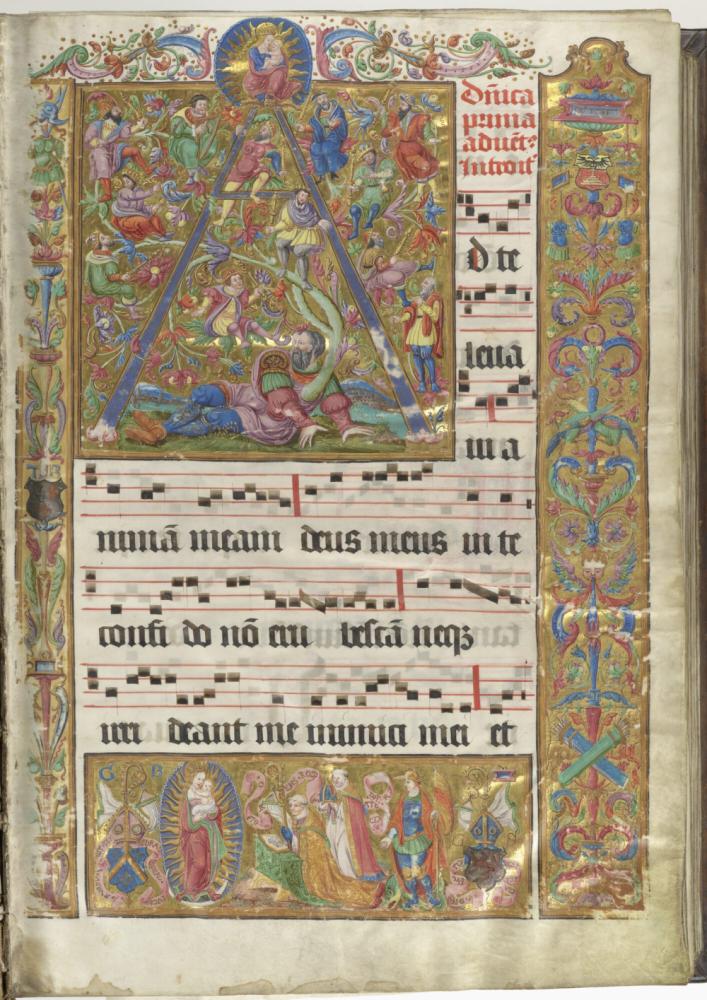 Dñica
prima
aduēt⁹
Introit⁹
D te
leua
ui a
nimā meam deus meus in te
confi do nō eru bescā neqꝫ
irri deant me inimici mei et
G B